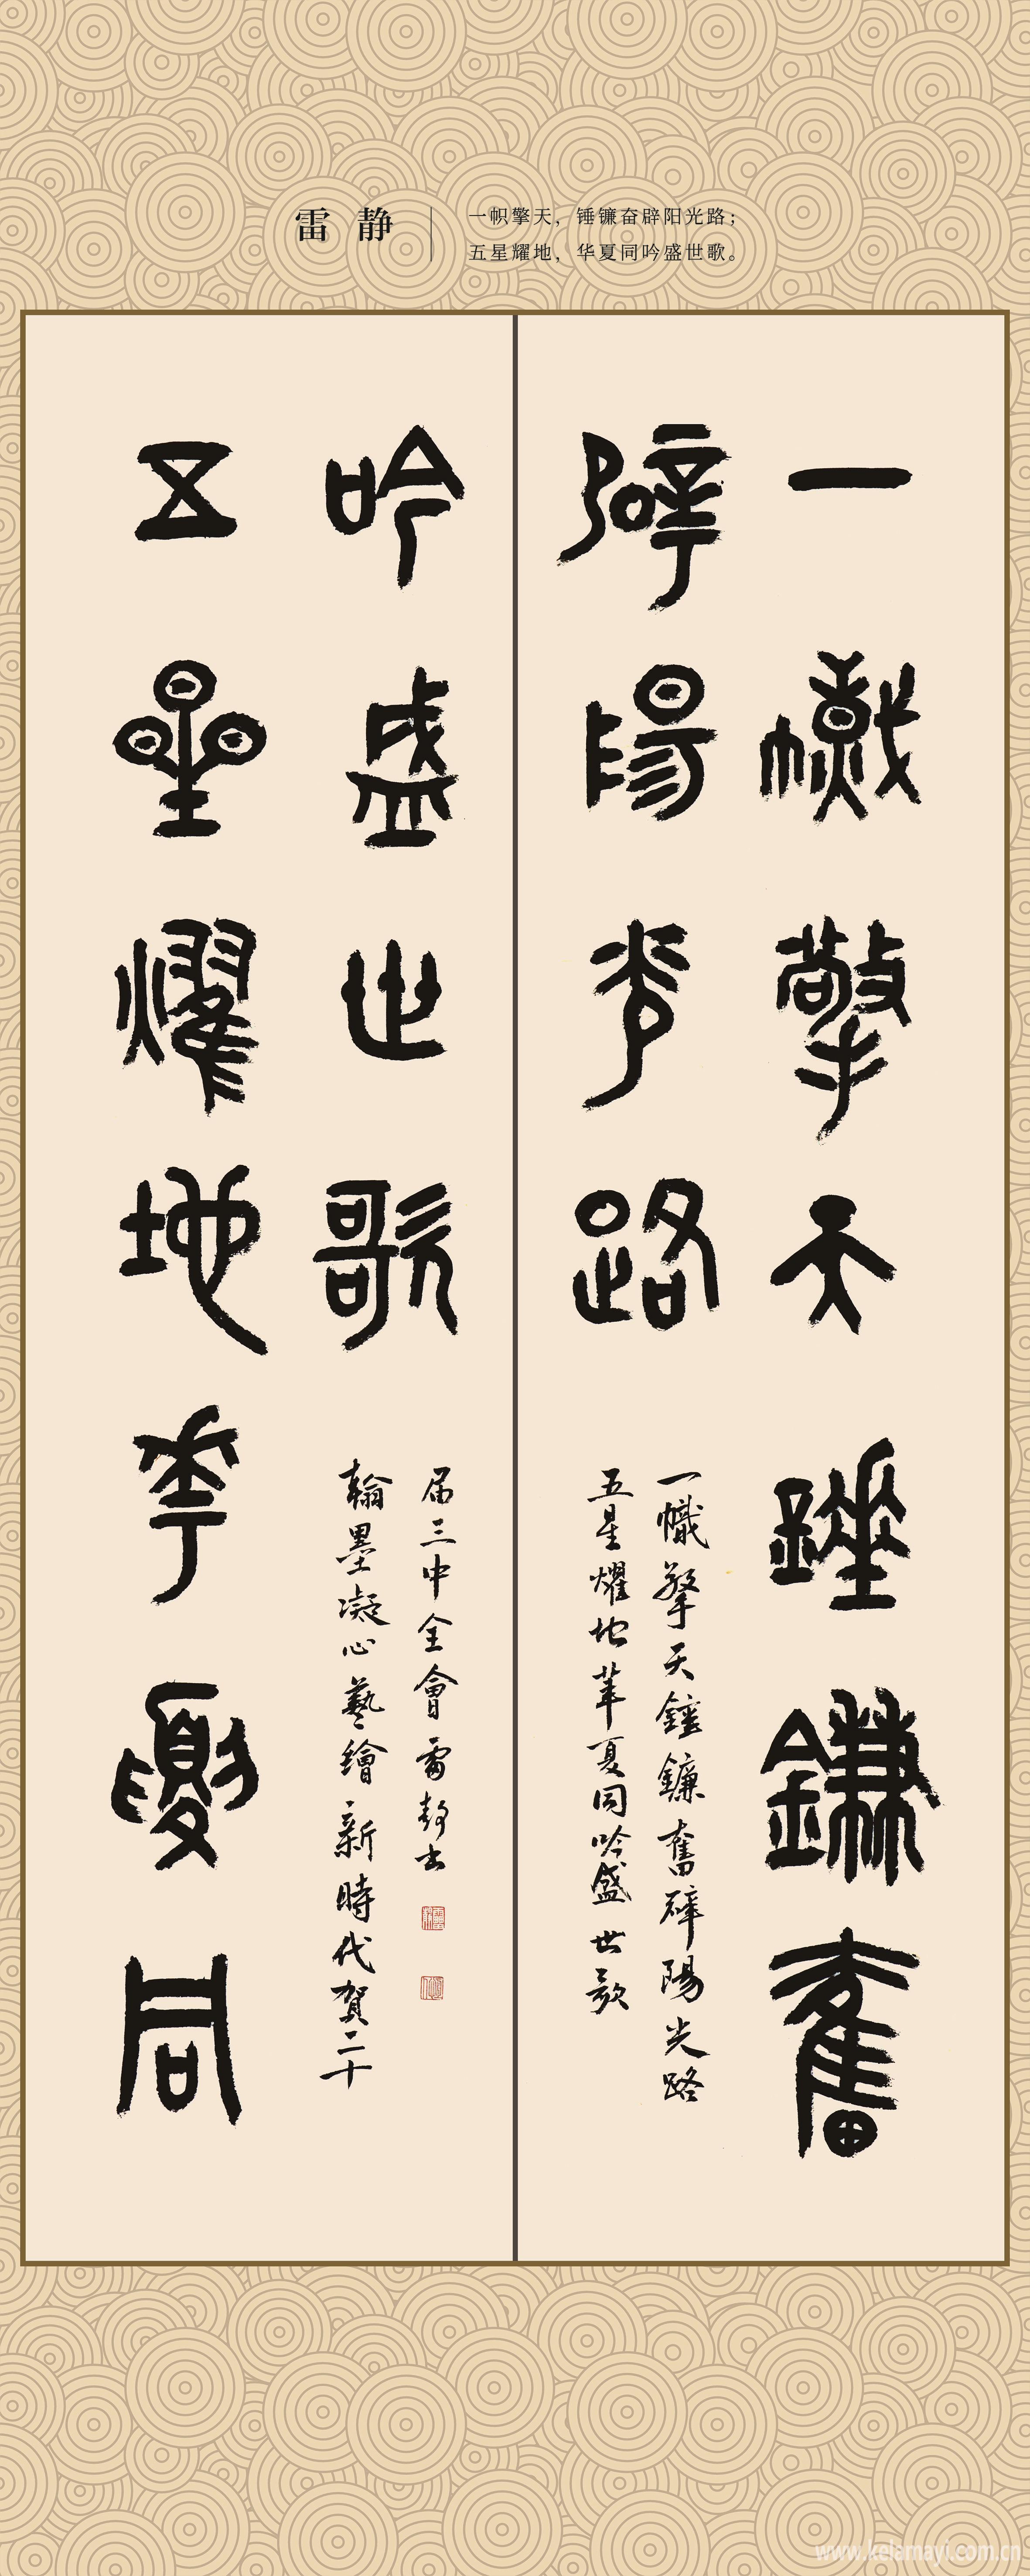 雷 静
一帜擎天，锤镰奋辟阳光路；
五星耀地，华夏同吟盛世歌。
一幟擎天錘鐮奮
擗陽光路
一幟擎天錘鐮奮擗陽光路
五星耀地華夏同吟盛世歌
五星耀地華夏同
吟盛世歌
翰墨凝心藝繪新時代賀二十
届三中全會雷静書
www.kelamayi.com.cn